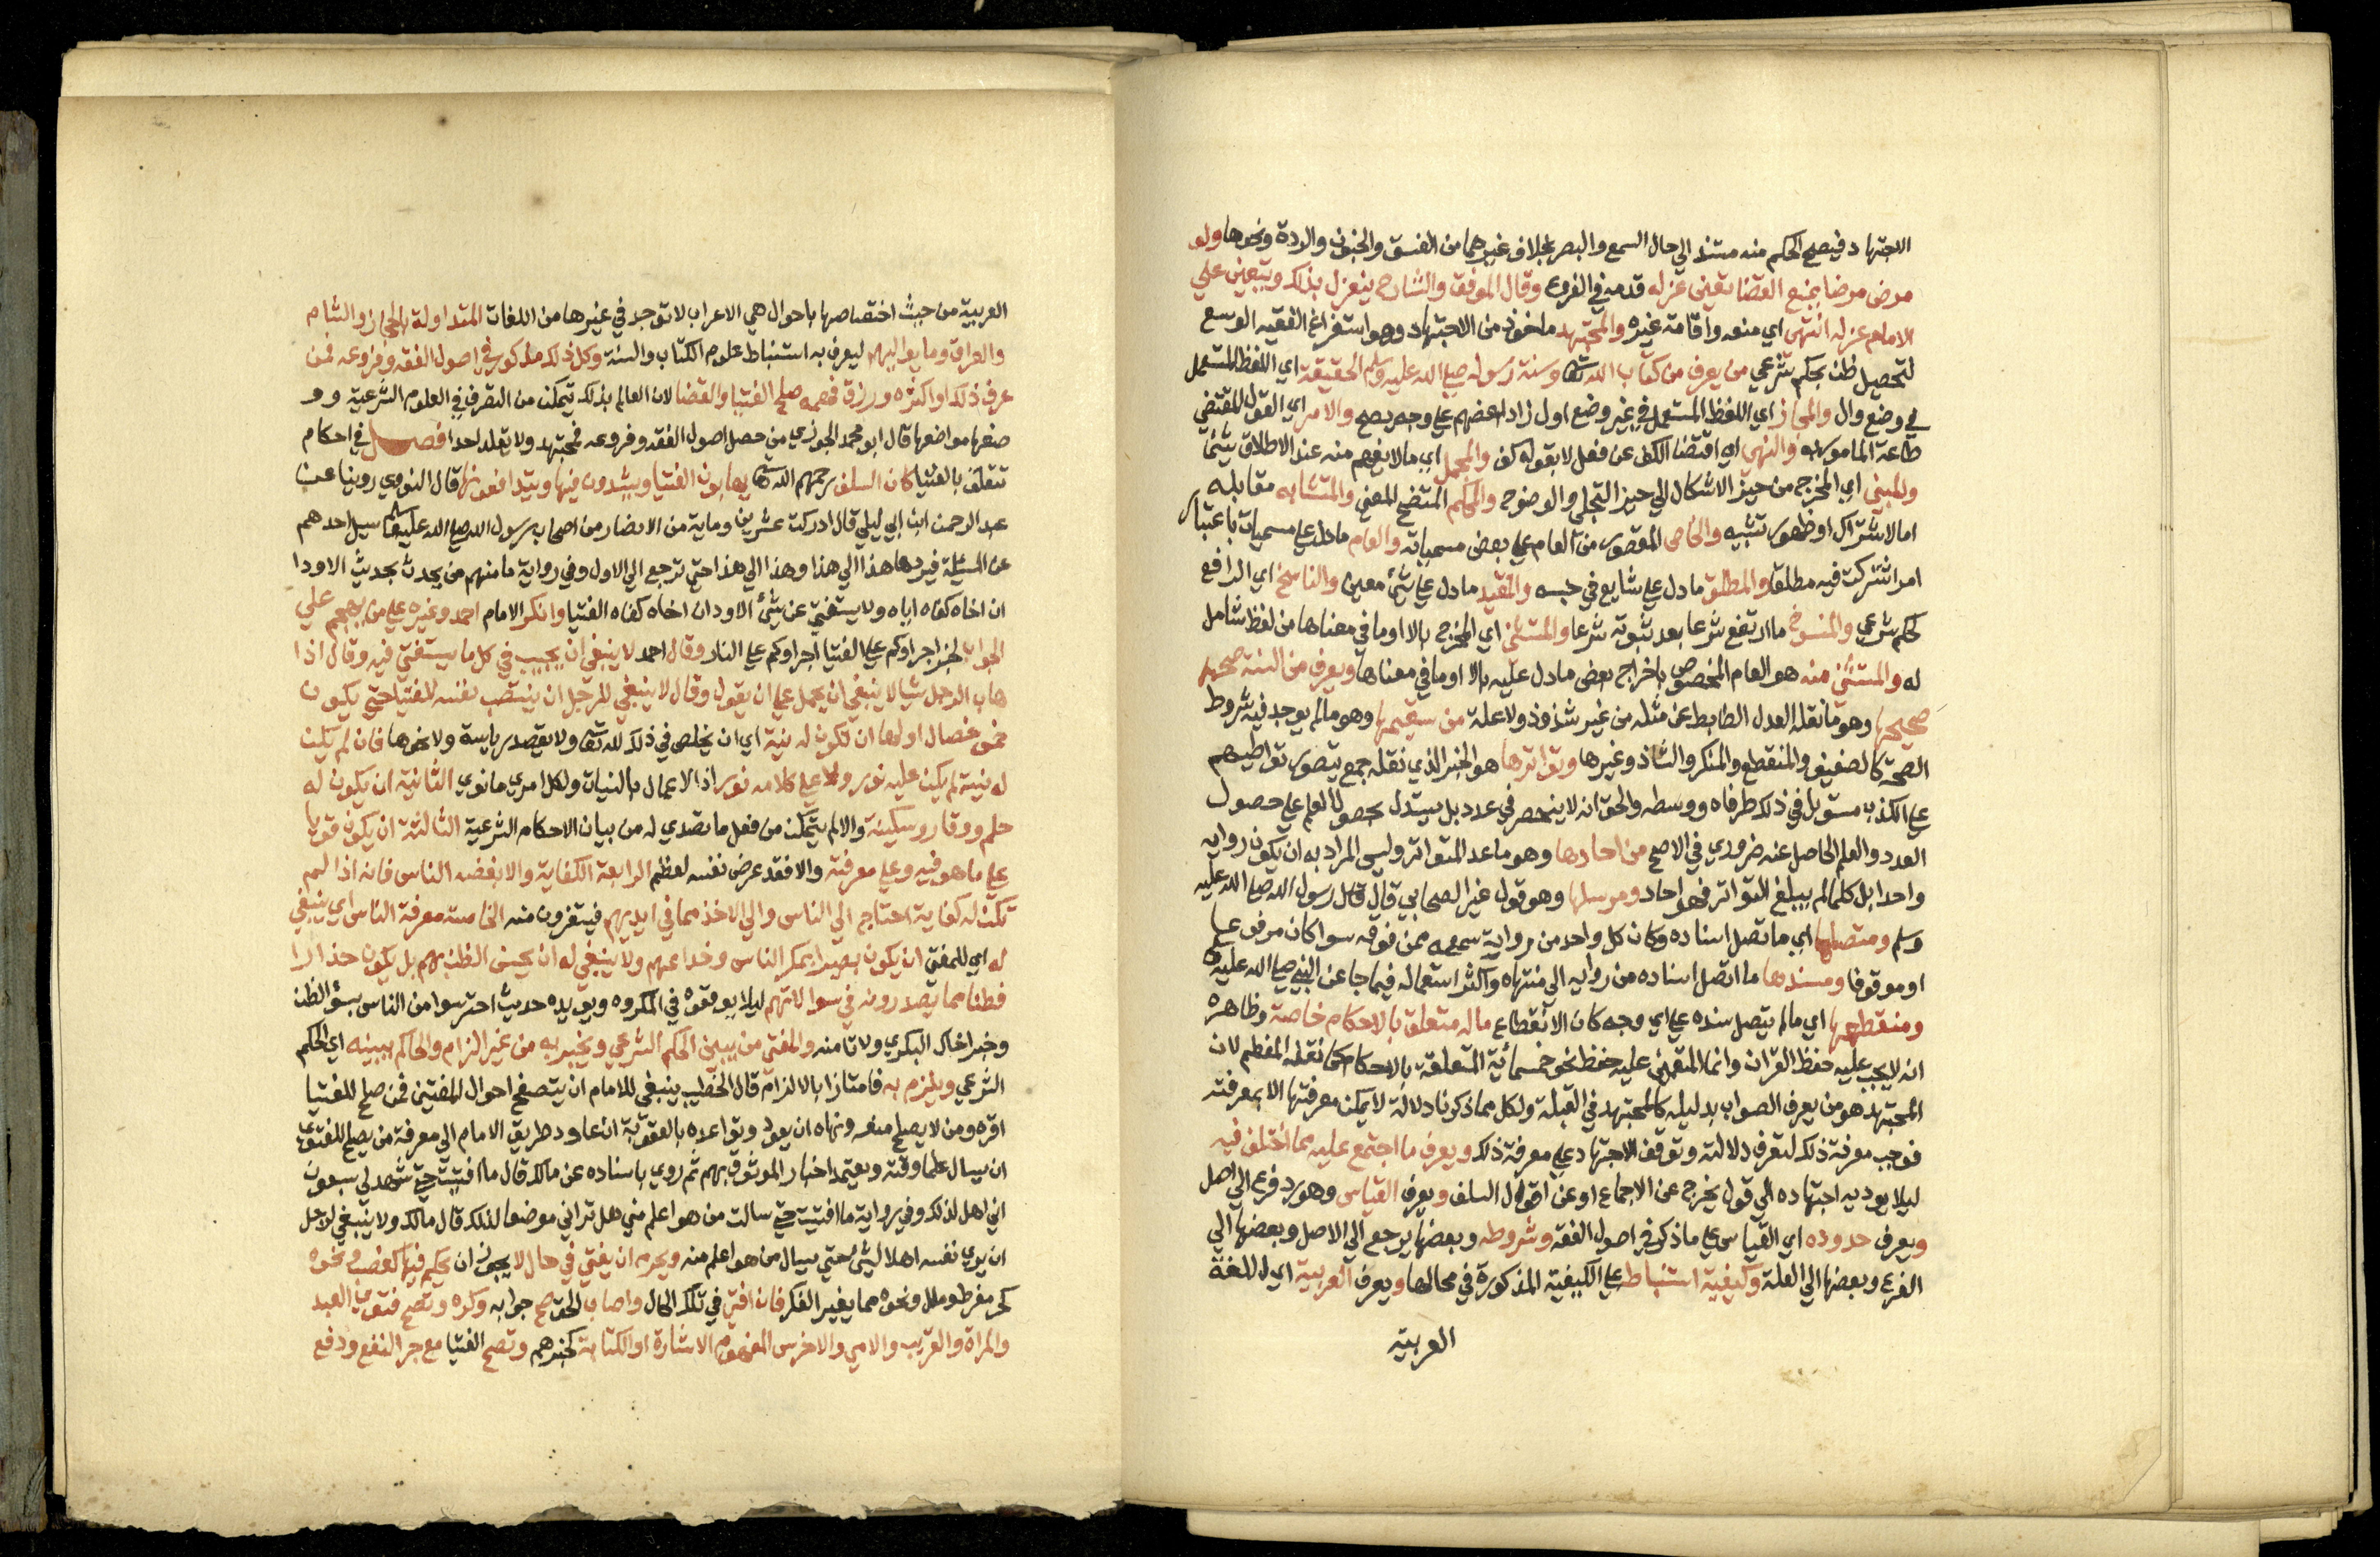 الاجتهاد فيصح الحكم منه مستند الي حال السمع والبصر بخلاف غيرهما من الفسق والجنون والردة ونحوها ولو
مرض مرضا يمنع القضا تعين عزله قدمه في الفروع وقال الموفق والشارح ينعزل بذلك ويتعين علي
الامام عزله انتهي اي منعه واقامة غيره والمجتهد ماخوذ من الاجتهاد وهو استفراغ الفقيه الوسع
لتحصيل ظن بحكم شرعي من يعرف من كتاب الله تعا وسنة رسوله صلي الله عليه وسلم الحقيقة اي اللفظ المستعمل
في وضع اول والمجاز اي اللفظ المستعمل في غير وضع اول زاد بعضهم علي وجه يصح والامر اي القول المقتضي
طاعة المامور به والنهي اي اقتضا الكف عن فعل لا بقوله كف والمجمل اي ما لا يفهم منه عند الاطلاق شئ
والمبين اي المخرج من حيز الاشكال الي حيز التجلي والوضوح والمحكم المتضح المعني والمتشابه مقابله
اما لاشتراك او ظهور تشبيه والخاص المقصور من العام علي بعض مسمياته والعام ما دل علي مسميات باعتبار
امر اشتركت فيه مطلقا والمطلق ما دل علي شايع في جنسه والمقيد ما دل علي شئ معين والناسخ اي الرافع
لحكم شرعي والمنسوخ ما ارتفع شرعا بعد ثبوته شرعا والمستثني اي المخرج بالا او ما في معناها من لفظ شامل
له والمستثني منه هو العام المخصوص باخراج بعض ما دل عليه بالا او ما في معناها ويعرف من السنة صحيحها
صحيحها وهو ما نقله العدل الضابط عن مثله من غير شذوذ ولا علة من سقيمها وهو ما لم يوجد فيه شروط
الصحة كالضعيف والمنقطع والمنكر والشاذ وغيرها وتواترها هو الخبر الذي نقله جمع يتصور تواطيهم
علي الكذب مستويا في ذلك طرفاه ووسطه والحق انه لا ينحصر في عدد بل يستدل بحصول العلم علي حصول
العدد والعلم الحاصل عنه ضروري في الاصح من احادها وهو ما عد المتواتر وليس المراد به ان يكون راويه
واحدا بل كلما لم يبلغ التواتر فهو احاد ومرسلها وهو قول غير الصحابي قال قال رسول الله صلي الله عليه
وسلم ومتصلها اي ما تصل اسناده وكان كل واحد من رواية سمعه ممن فوقه سوا كان مرفوعا
او موقوفا ومسندها ما اتصل اسناده من راويه الي منتهاه واكثر استعماله فيما جا عن النبي صلي الله عليه
ومنقطعها اي ما لم يتصل سنده علي اي وجه كان الانقطاع ما له متعلق بالاحكام خاصة وظاهره
انه لا يجب عليه حفظ القران وانما المتعين عليه حفظ نحو خمسمائية المتعلقة بالاحكام كما نقله المعظم لان
المجتهد هو من يعرف الصواب بدليله كالمجتهد في القبلة ولكل مما ذكرنا دلالة لا يمكن معرفتها الا بمعرفته
فوجب معرفة ذلك لتعرف دلالته وتوقف الاجتهاد علي معرفة ذلك ويعرف ما اجتمع عليه مما اختلف فيه
ليلا يوديه اجتهاده الي قول يخرج عن الاجماع او عن اقوال السلف ويعرف القياس وهو رد فرع الي اصل
ويعرف حدوده اي القياس علي ما ذكر في اصول الفقه وشروطه وبعضها يرجع الي الاصل وبعضها الي
الفرع وبعضها الي العلة وكيفية استنباط علي الكيفية المذكورة في محالها ويعرف العربية اي اللغة
العربية
العربية من حيث اختصاصها باحوال هي الاعراب لا توجد في غيرها من اللغات المتداولة بالحجاز والشام
والعراق وما يواليهم ليعرف به استنباط علوم الكتاب والسنة وكل ذلك مذكور في اصول الفقه وفروعه فمن
عرف ذلك او اكثره ورزق فهمه صلح للفتيا والقضا لان العالم بذلك يتمكن من التصرف في العلوم الشرعية وو
ضعها مواضعها قال ابو محمد الجوزي من حصل اصول الفقه وفروعه فمجتهد ولا يقلد احدا فصل في احكام
تتعلق بالفتيا كان السلف رحمهم الله تعا يهابون الفتيا ويشددون فيها ويتدافعونها قال النووي روينا عن
عبد الرحمن ابن ابي ليلي قال ادركت عشرين وماية من الانصار من اصحاب رسول الله صلي الله عليه وسلم يسيل احدهم
عن المسيلة فيردها هذا الي هذا وهذا الي هذا حتي ترجع الي الاول وفي رواية ما منهم من يحدث بحديث الا ودا
ان اخاه كفاه اياه ولا يستفتي عن شئ الا ود ان اخاه كفاه الفتيا وانكر الامام احمد وغيره علي من يهجم علي
الجواب لخبر اجراوكم علي الفتيا اجراوكم علي النار وقال احمد لا ينبغي ان يجيب في كل ما يستفتي فيه وقال اذا
هاب الرجل شيا لا ينبغي ان يحمل علي ان يقول وقال لا ينبغي للرجل ان ينصب نفسه للفتيا حتي يكون
خمس خصال اولها ان تكون له نية اي ان يخلص في ذلك لله تعا ولا يقصد رياسة ولا نحوها فان لم يكن
له نية لم يكن عليه نور ولا علي كلامه نور اذ الاعمال بالنيات ولكل امري ما نوي الثانية ان يكون له
حلم ووقار وسكينة والا لم يتمكن من فعل ما تصدي له من بيان الاحكام الشرعية الثالثة ان يكون قويا
علي ما هو فيه وعلي معرفته والا فقد عرض نفسه لعظم الرابعة الكفاية والا بغضه الناس فانه اذا لم
تكن له كفاية احتاج الي الناس والي الاخذ مما في ايديهم فيتفرون منه الخامسة معرفة الناس اي ينبغي
له اي للمفتي ان يكون بصيرا بمكر الناس وخداعهم ولا ينبغي له ان يحسن الظن بهم بل يكون حذرا
فطنا مما يصدرونه في سوالاتهم ليلا يوقعوه في المكروه ويويده حديث احترسوا من الناس بسؤ الظن
وخبر اخاك البكري ولا تامنه والمفتي من يبين الحكم الشرعي ويخبر به من غير الزام والحاكم يبينه اي الحكم
الشرعي ويلزم به فامتاز بالالزام قال الخطيب ينبغي للامام ان يتصفح احوال المفتين فمن صلح للفتيا
اقره ومن لا يصلح منعه ونهاه ان يعود وتواعده بالعقوبة ان عاد وطريق الامام الي معرفة من يصلح للفتوي
ان يسال علما وقته ويعتمد اخبار الموثوق بهم ثم روي باسناده عن مالك قال ما افتيت حتي شهد لي سبعون
اني اهل لذلك وفي رواية ما افتيت حتي سالت من هو اعلم مني هل تراني موضعا لذلك قال مالك ولا ينبغي لرجل
ان يري نفسه اهلا لشئ حتي يسال من هو اعلم منه ويحرم ان يفتي في حال لا يجوز ان يحكم فيها كغضب ونحوه
كحر مفرط وملل ونحوه مما يغير الفكر فان افتي في تلك الحال واصاب الحق صح جوابه وكره وتصح فتوي العبد
والمراة والقريب والامي والاخرس المفهوم الاشارة او الكتابة كخبرهم وتصح الفتيا مع جر النفع ودفع